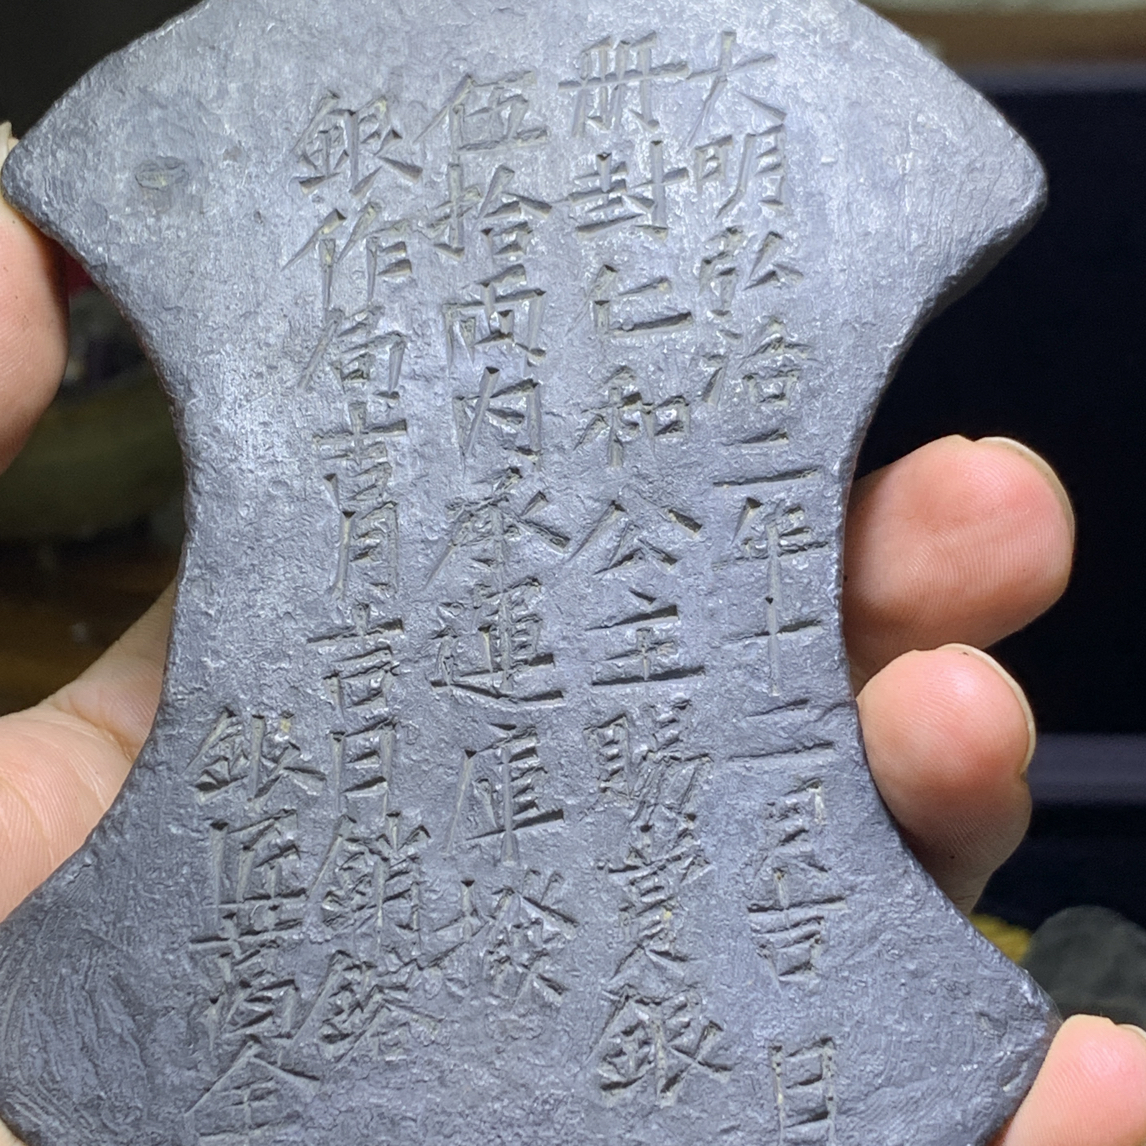 大明弘治二年十二月吉日
册封仁和公主賜賞銀
伍拾両内承運庫撥
銀作局吉月吉日銷鎔
銀匠萬全